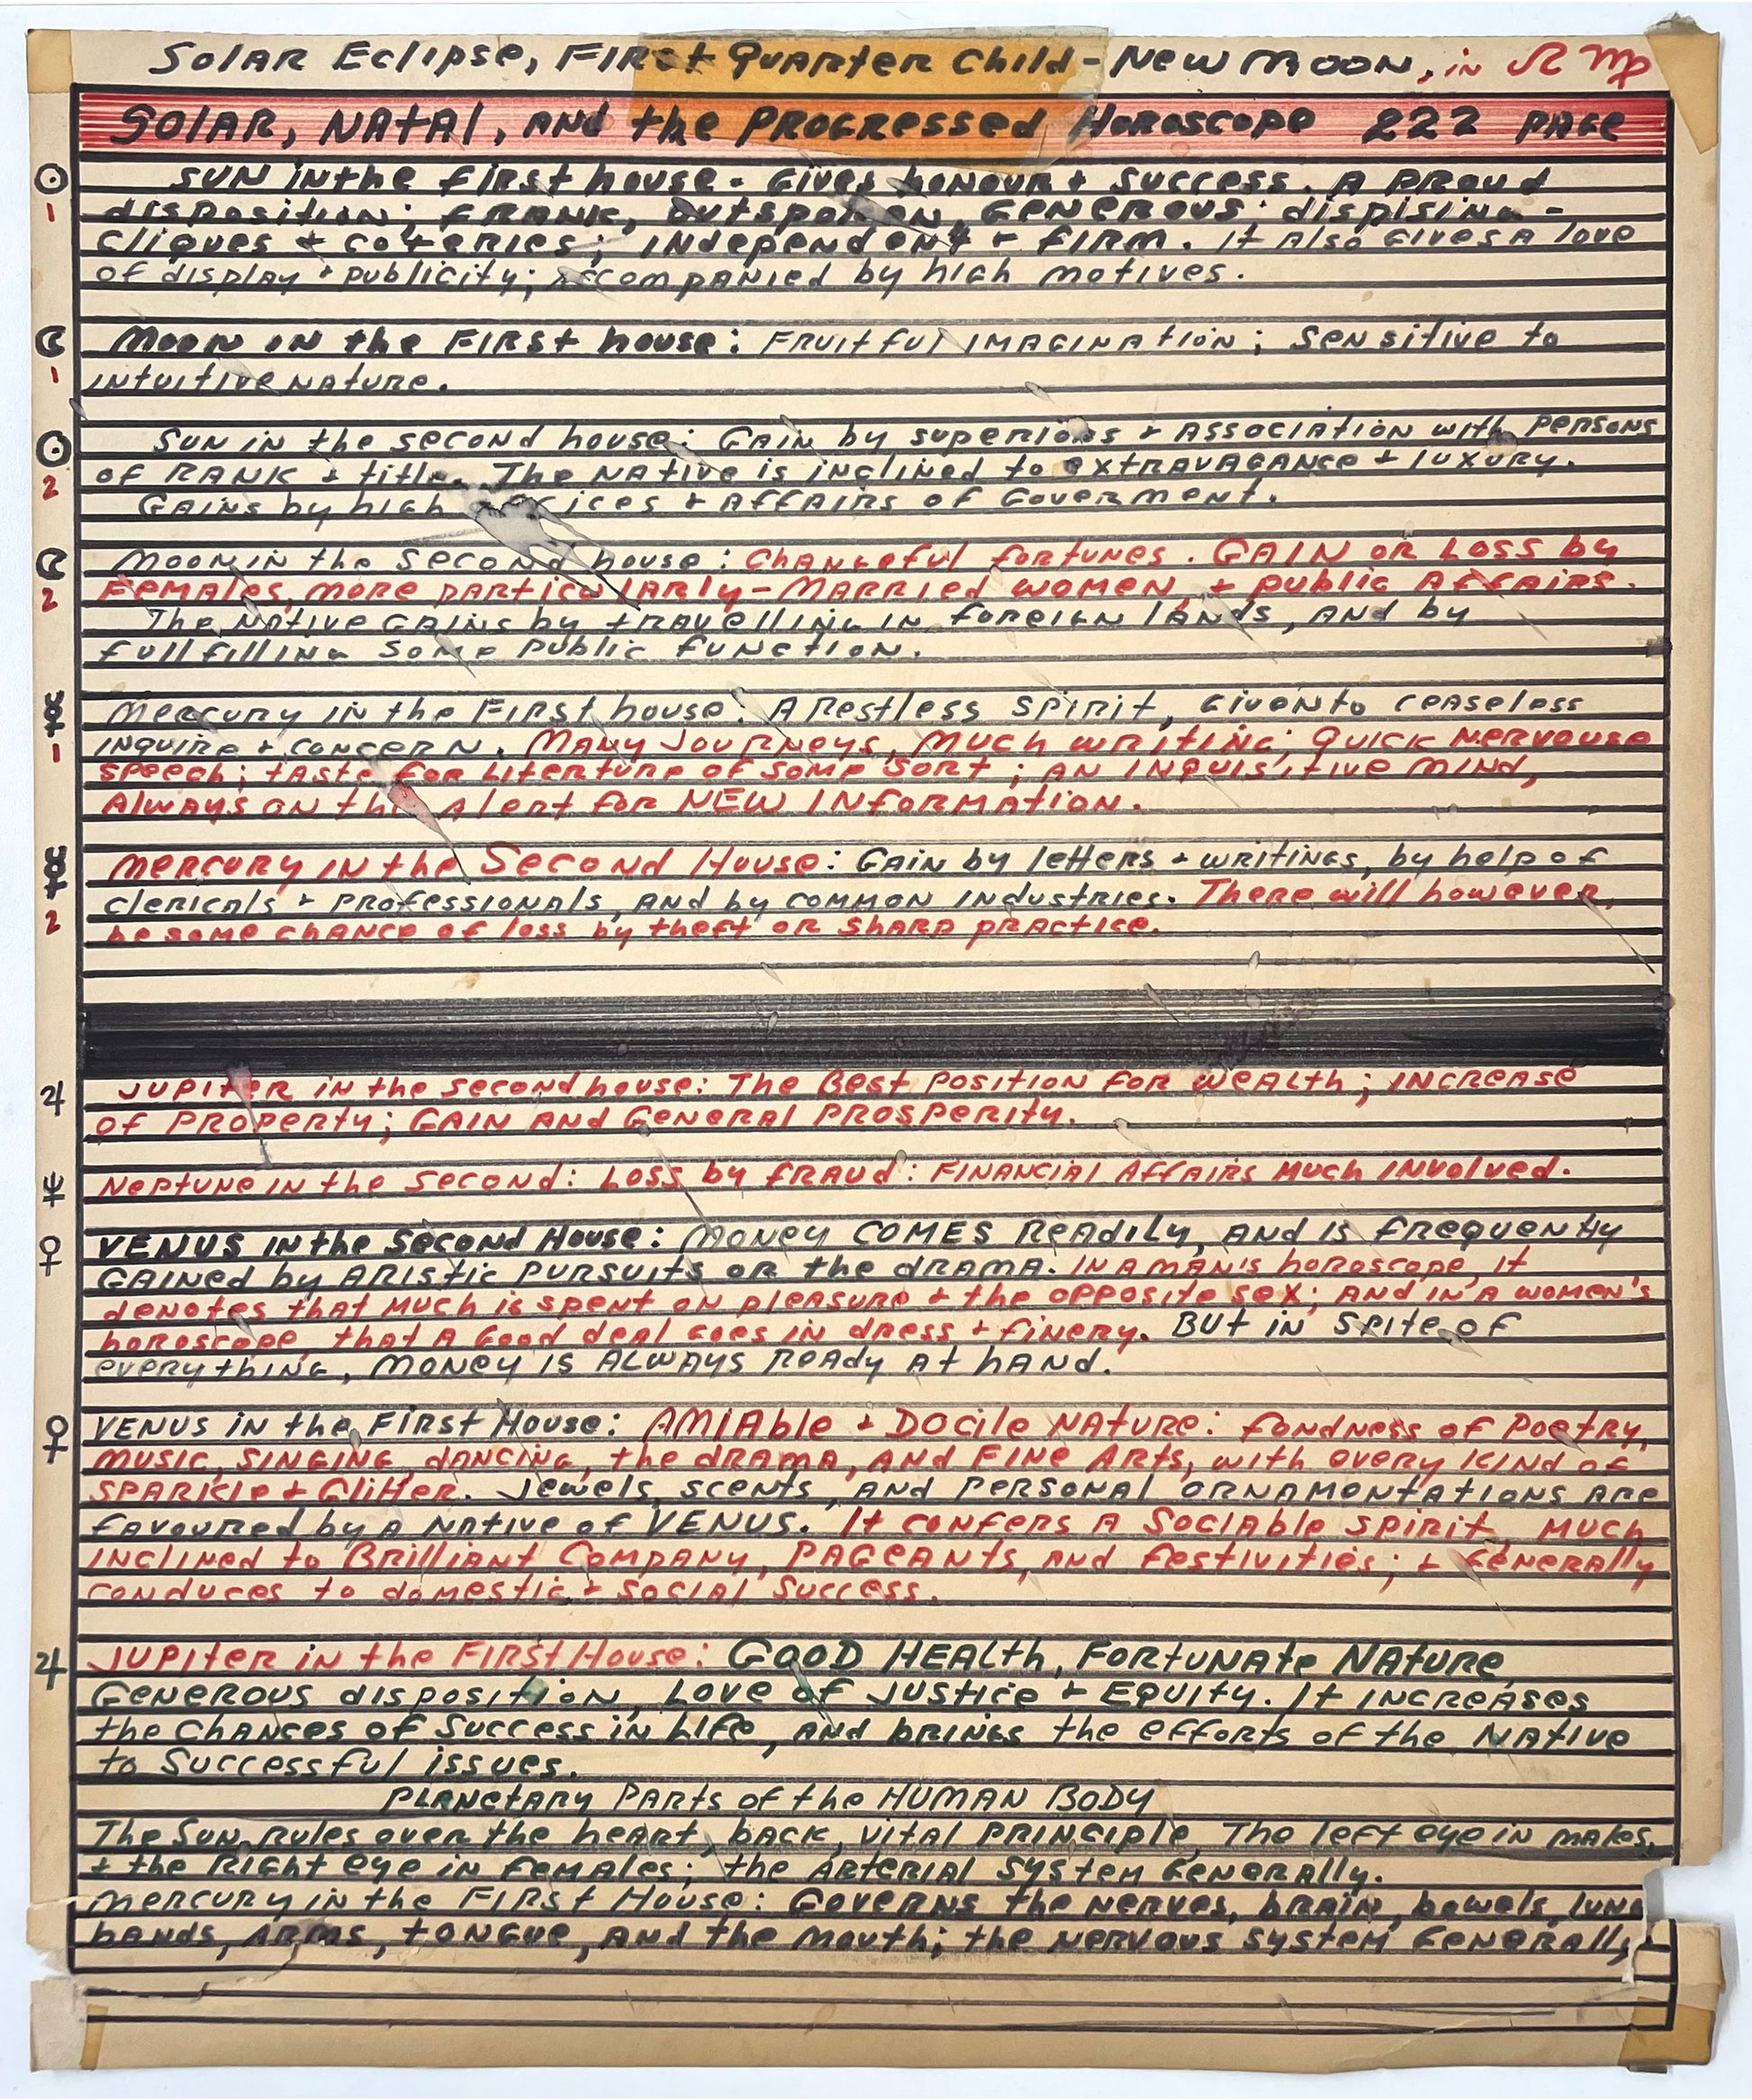 Solar Eclipse, First Quarter Child - New Moon, in ♌ ♍
Solar, Natal, and the Progressed Horoscope 222 page
☉ Sun in the first house. Gives honour + success. A proud
1 disposition; frank, outspoken, generous; dispising -
cliques + coteries; independent + firm. It also gives a love
of display + publicity; accompanied by high motives.
☾ Moon in the First house: Fruitful imagination; sensitive to
1 intuitive nature.
☉ Sun in the second house: Gain by superiors + association with persons
of rank + title. The native is inclined to extravagance + luxury.
2 Gains by high ices + affairs of Goverment.
☾ Moon in the second house: Changeful fortunes. Gain or loss by
2 females, more particularly - married women, + public affairs.
The native gains by travelling in foreign lands, and by
fullfilling some public function.
☿ Mercury in the First house: A restless spirit, given to ceaseless
1 inquire + concern. Many journeys, much writing; quick nervouse
speech; taste for literture of some sort; an inquisitive mind,
always on the alert for NEW information.
☿ Mercury in the Second House: Gain by letters + writings, by help of
clericals + professionals, and by common industries. There will however,
2 be some chance of loss by theft or sharp practice.
♃ Jupiter in the second house: The best position for wealth; increase
of property; gain and general prosperity.
♆ Neptune in the second: Loss by fraud: financial affairs much involved.
♀ VENUS in the Second House: Money COMES readily, and is frequently
gained by aristic pursuits or the drama. In a man's horoscope, it
denotes that much is spent on pleasure + the opposite sex; and in a women's
horoscope, that a good deal goes in dress + finery. But in spite of
everything, money is always ready at hand.
♀ VENUS in the First House: Amiable + Docile nature: fondness of poetry,
music, singing, dancing, the drama, and fine arts, with every kind of
sparkle + glitter. Jewels, scents, and personal ornamontations are
favoured by a native of VENUS. It confers a sociable spirit much
inclined to brilliant company, pageants, and festivities; + generally
conduces to domestic + social success.
♃ Jupiter in the First House: GOOD HEALth, Fortunate Nature,
generous disposition, love of justice + equity. It increases
the chances of success in life, and brings the efforts of the native
to successful issues.
Planetary Parts of the HUMAN BODY
The Sun rules over the heart, back, vital principle, The left eye in males,
+ the right eye in females; the arterial system generally.
Mercury in the First House: Governs the nerves, brain, bowels, lung
hands, arms, tongue, and the mouth; the nervous system generally